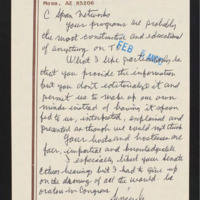 Mesa, AZ 85206
C Span Networks
Your programs are probably
the most constructive and educational
of anything on T
FEB
What I like particularly is
that you provide the information
but you don't editorialize it and
permit us to make up our own
minds instead of having it
to us, interpreted, explained and
presented as though we could not think
Your hosts and hostesses are
fair, impartial and knowledgeable
I especially like your Senate
hearings but I had to give up
on the showing of all the would be
orators in Congress
Sincerely